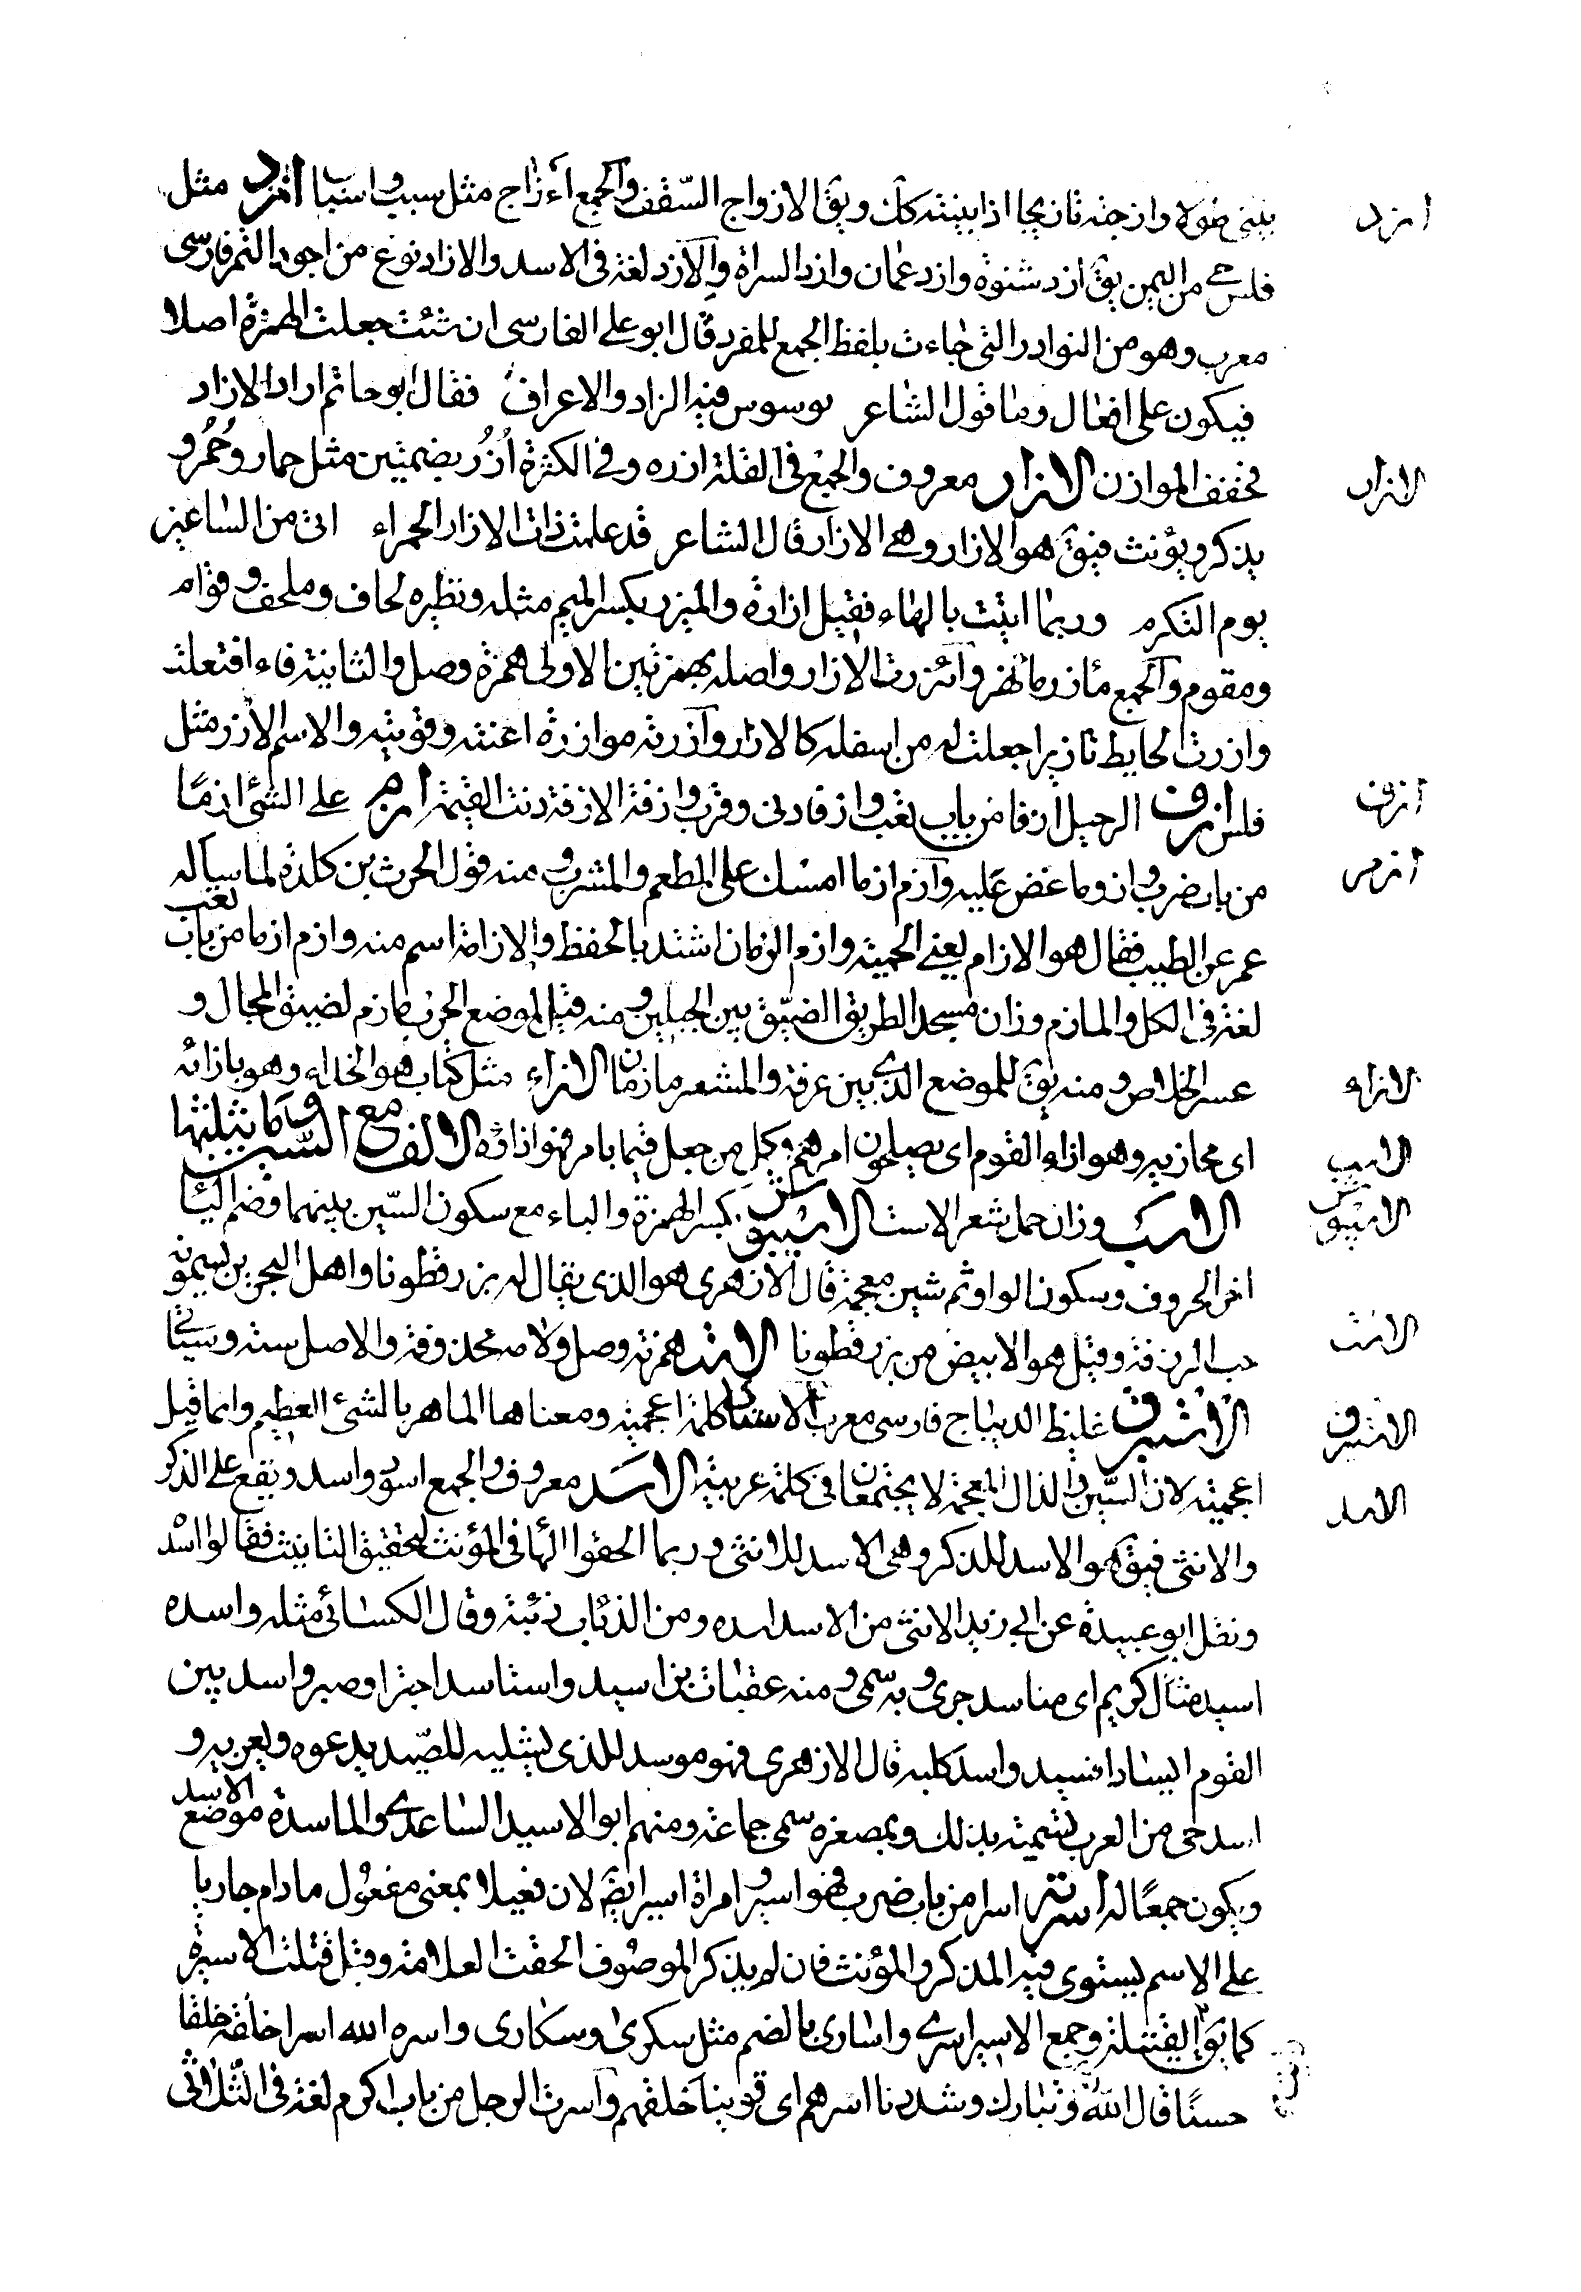 يبنى طولا وازجته تازيجا اذا بنيته كك ويق الازواج السقف والجمع آزاج مثل سبب واسباب ازد مثل
ازد
فلس حى من اليمن يق ازد شنوة وازد عمان وازد السراة والازد لغة فى الاسد والازاد نوع من اجود التمر فارسى
معرب وهو من النوادر التى جاءت بلفظ الجمع للمفرد قال ابو على الفارسى ان شئت جعلت الهمزة اصلا
فيكون على افعال وما قول الشاعر يوسوس فيه الزاد والاعراف فقال ابو حاتم اراد الازاد
فخفف الموازن الازار معروف والجمع فى القلة ازره وفى الكثرة اُزُر بضمتين مثل حمار وحُمُر و
الازار
يذكر ويؤنث فيق هو الازار وهى الازار قال الشاعر قد علمت ذات الازار الحمراء انى من الساعين
يوم النكرم وربما انيت بالهاء فقيل ازارة والميزر بكسر الميم مثله ونظيره لحاف وملحف وقوام
ومقوم والجمع مأزر واتزرت الازار واصله بهمزتين الاولى همزة وصل والثانية فاء افتعلت
وازرت الحايط تازيرا جعلت له من اسفله كالازار وآزرته موازرة اعنته وقويته والاسم الازر مثل
فلس ازف الرحيل ازفا من باب تعب وازفا دنى وقرب وازفة الازفة دنت القيمة ازم على الشئ ازمًا
ازف
من باب ضرب وازوما عض عليه وآزم ازما امسك على المطعم والمشرب ومنه قول الحرث بن كلدة لما سأله
ازم
عمر عن الطبيب فقال هو الازام يعنى الحمية وازم الزمان اشتد بالحفظ والازامة اسم منه وازم ازما من باب تعب
لغة فى الكل والمازم وزان مسجد الطريق الضيّق بين الجبلين ومنه قيل لموضع الحرب مازم لضيق المجال و
عسر الخلاص ومنه يق للموضع الذى بين عرفة والمشعر مازمان الازاء مثل كتاب هو الحذاء وهو بازائه
الازاء
اى محاذيه وهو ازاء القوم اى يصلحون امرهم وكل من جعل قيما بامر فهو ازاؤه الالف مع السين وما يثلثها
الاسب وزان حمل شعر الاست الاسبيوش بكسر الهمزة والباء مع سكون السّين بينهما وضم اليا
الاسب
الاسبيوش
اخر الحروف وسكون الواو ثم شين معجمة قال الازهرى هو الذى يقال له بزرقطونا واهل البحرين يسمونه
حب الزرقة وقيل هو الابيض من بزرقطونا الاست همزته وصل ولامه محذوفة والاصل سته وسيأتى
الاست
الاستبرق غليظ الديباج فارسى معرب الاستاذ كلمة اعجمية ومعناها الماهر بالشئ العظيم وانما قيل
الاستبرق
اعجمية لان السّين والذال المعجمة لا يجتمعان فى كلمة عربية الاسد معروف والجمع اسود واسد ويقع على الذكر
الاسد
والانثى فيق هو الاسد للذكر وهى الاسد للانثى وربما الحقوا الها فى المؤنث لتحقيق التانيث فقالوا اسدة
ونقل ابو عبيدة عن ابى زيد الانثى من الاسد اسده ومن الذئاب ذئبة وقال الكسائى مثله واسده
اسيد مثال كريم اى متاسد جرى وبه سمى ومنه عقبات بن اسيد واستاسد اجترا وصبر واسد بين
القوم ايسادا افسد واسد كلبه قال الازهرى فهو موسد للذى يشليه للصّيد يدعوه ويغريه و
اسد حى من العرب تسمية بذلك وبمصغره سمى جماعة ومنهم ابو الاسيد الساعدى والماسدة موضع الاسد
ويكون جمعًا له اسرته اسرا من باب ضرب فهو اسير وامراة اسير ايضا لان فعيلا بمعنى مفعول ما دام جاريا
على الاسم يستوى فيه المذكر والمؤنث فان لم يذكر الموصوف الحقت العلامة وقيل قتلت الاسيرة
كما يق القتيلة وجمع الاسير اسرى واسارى بالضم مثل سكرى وسكارى واسره الله اسرا خلقه خلقا
حسنًا قال الله تبارك وشددنا اسرهم اى قوينا خلقهم وآسرت الرجل من باب اكرم لغة فى الثلاثى